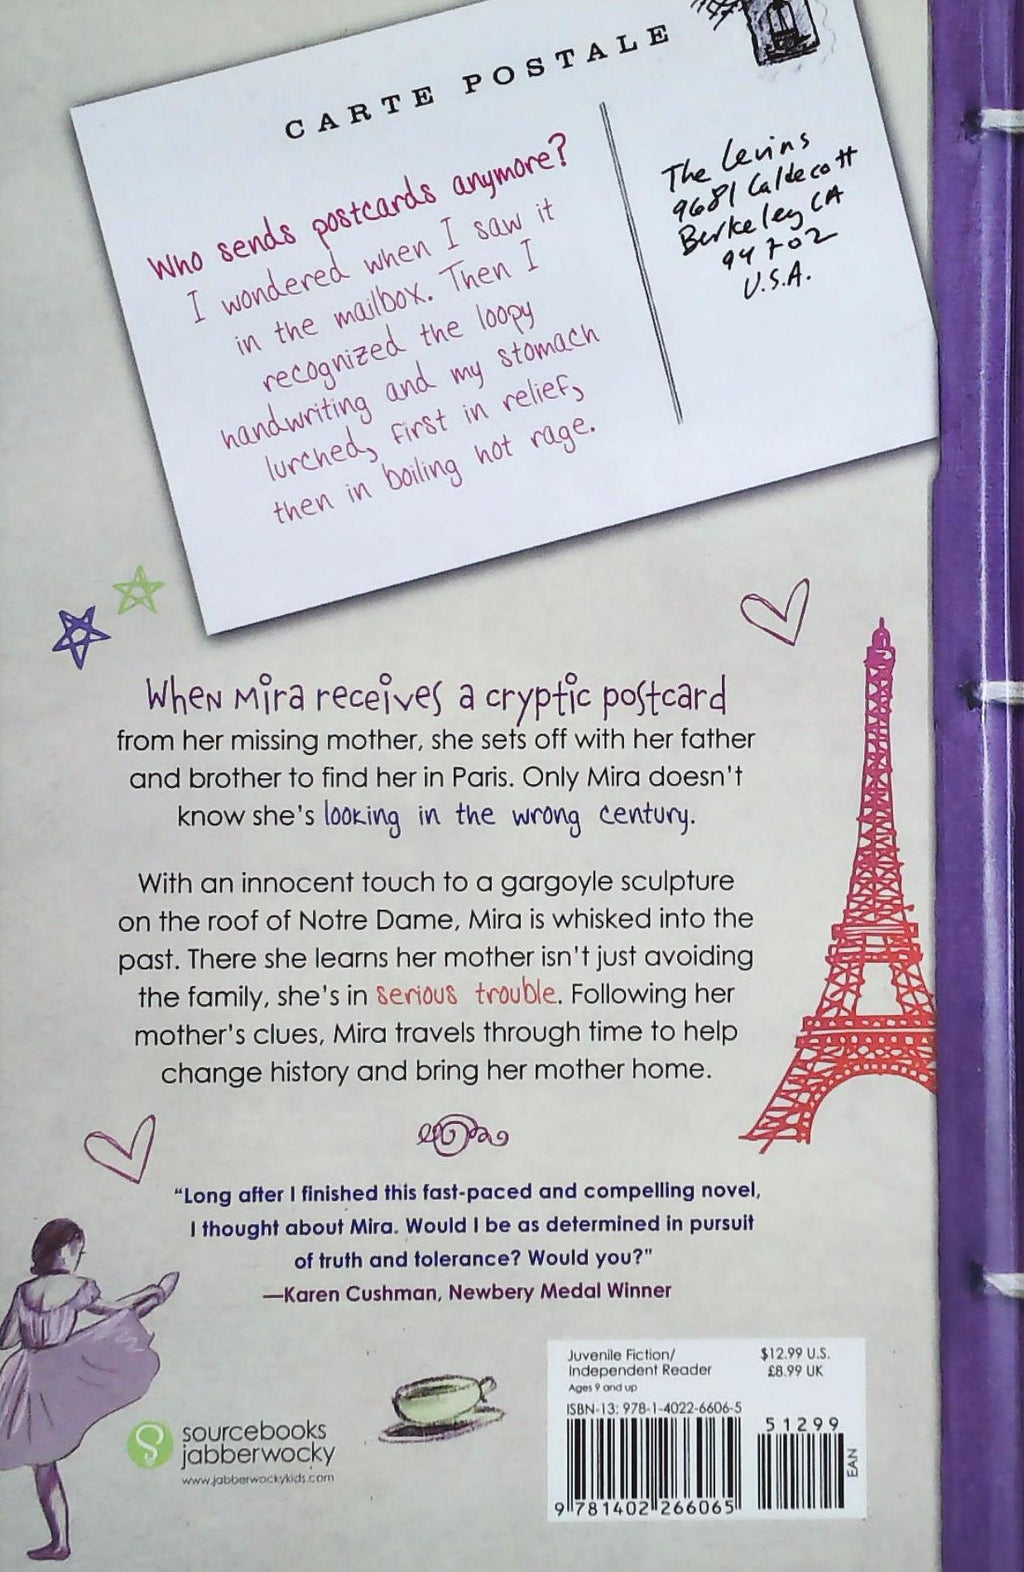 CARTE POSTALE
Who sends postcards anymore?
I wondered when I saw it
in the mailbox. Then I
recognized the loopy
handwriting and my stomach
lurched, first in relief,
then in boiling hot rage.
The Levins
9681 Caldecott
Berkeley CA
94702
U.S.A.
When Mira receives a cryptic postcard
from her missing mother, she sets off with her father
and brother to find her in Paris. Only Mira doesn't
know she's looking in the wrong century.
With an innocent touch to a gargoyle sculpture
on the roof of Notre Dame, Mira is whisked into the
past. There she learns her mother isn't just avoiding
the family, she's in serious trouble. Following her
mother's clues, Mira travels through time to help
change history and bring her mother home.
"Long after I finished this fast-paced and compelling novel,
I thought about Mira. Would I be as determined in pursuit
of truth and tolerance? Would you?"
—Karen Cushman, Newbery Medal Winner
Juvenile Fiction/
Independent Reader
Ages 9 and up
$12.99 U.S.
£8.99 UK
ISBN-13: 978-1-4022-6606-5
51299
EAN
9 781402 266065
sourcebooks
jabberwocky
www.jabberwockykids.com